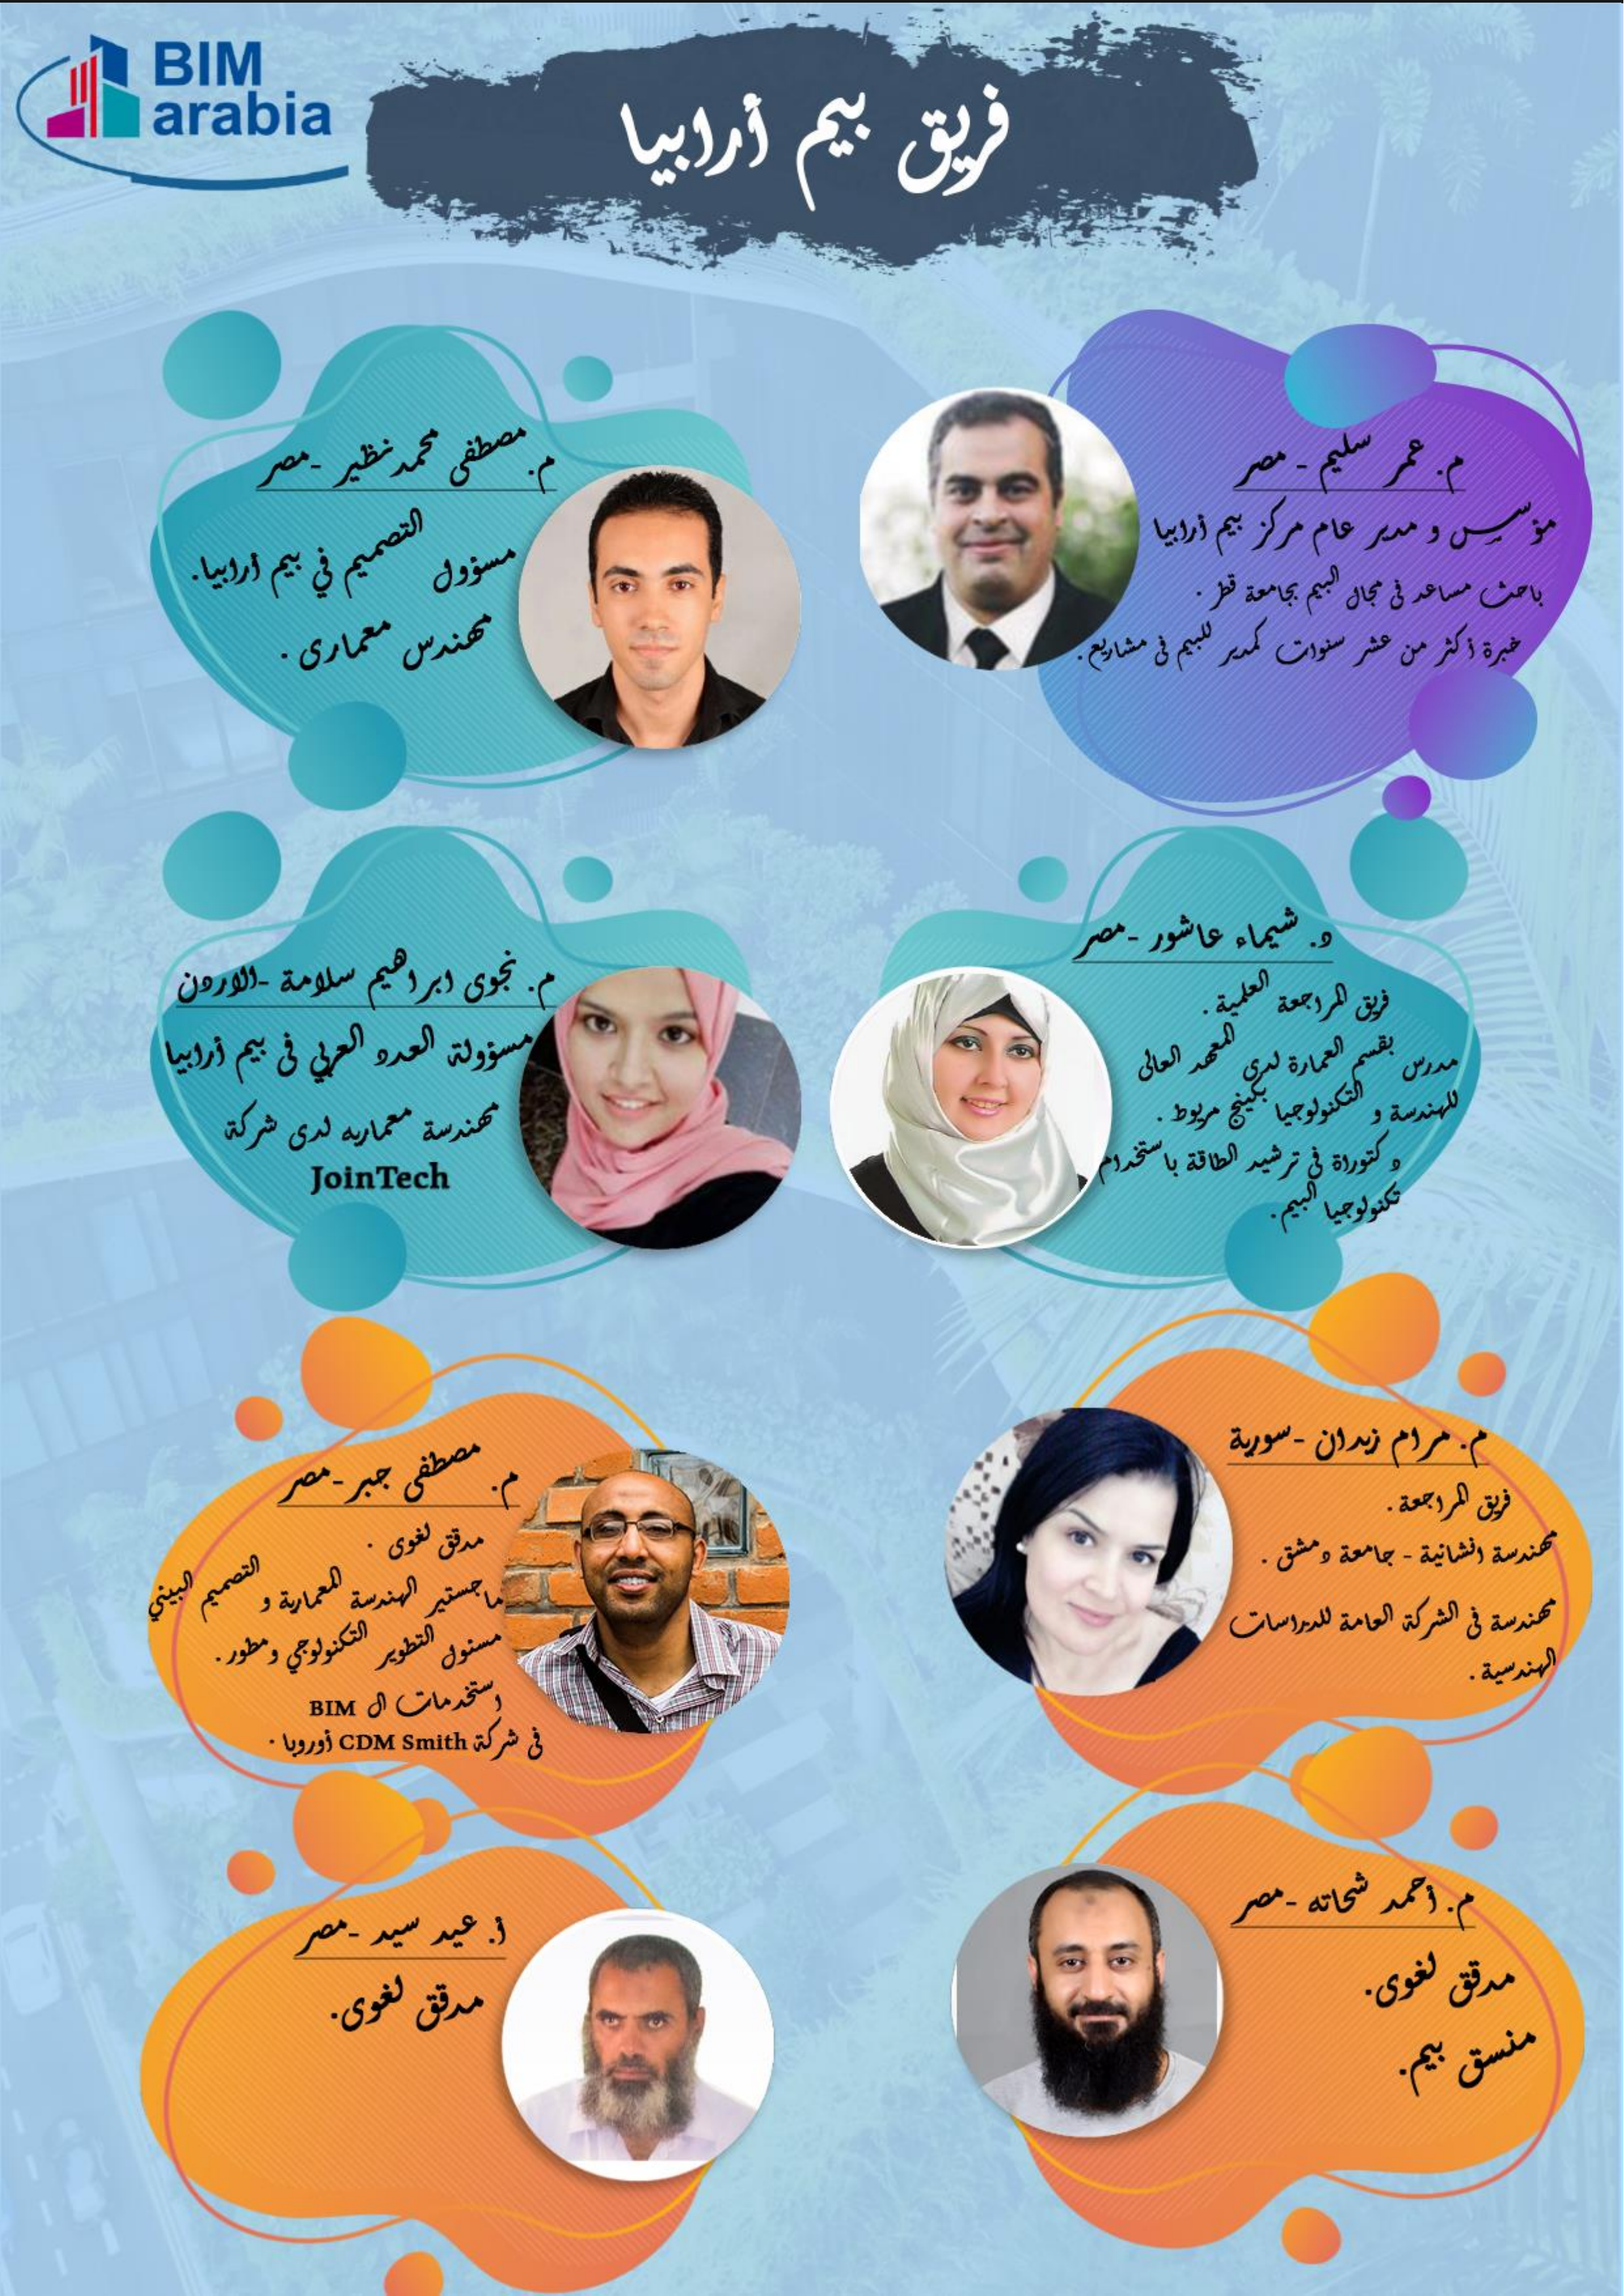 BIM
arabia
فريق بيم أرابيا
م. عمر سليم - مصر
مؤسس و مدير عام مركز بيم أرابيا
باحث مساعد في مجال البيم بجامعة قطر .
خبرة أكثر من عشر سنوات كمدير للبيم في مشاريع.
م. مصطفى محمد نظير -مصر
مسؤول التصميم في بيم أرابيا.
مهندس معمارى .
د. شيماء عاشور -مصر
فريق المراجعة العلمية .
مدرس بقسم العمارة لدى المعهد العالى
للهندسة و التكنولوجيا بكينج مريوط .
دكتوراة في ترشيد الطاقة باستخدام
تكنولوجيا البيم.
م. نجوى ابراهيم سلامة -الاردن
مسؤولة العدد العربي في بيم أرابيا
مهندسة معماريه لدى شركة
JoinTech
م. مرام زيدان -سورية
فريق المراجعة .
مهندسة انشائية - جامعة دمشق .
مهندسة في الشركة العامة للدراسات
الهندسية .
م. مصطفى جبر -مصر
مدقق لغوى .
ماجستير الهندسة المعمارية و التصميم البيئي
مسئول التطوير التكنولوجي ومطور .
استخدمات ال BIM
في شركة CDM Smith أوروبا .
م. أحمد شحاته -مصر
مدقق لغوى.
منسق بيم.
أ. عيد سيد -مصر
مدقق لغوى.